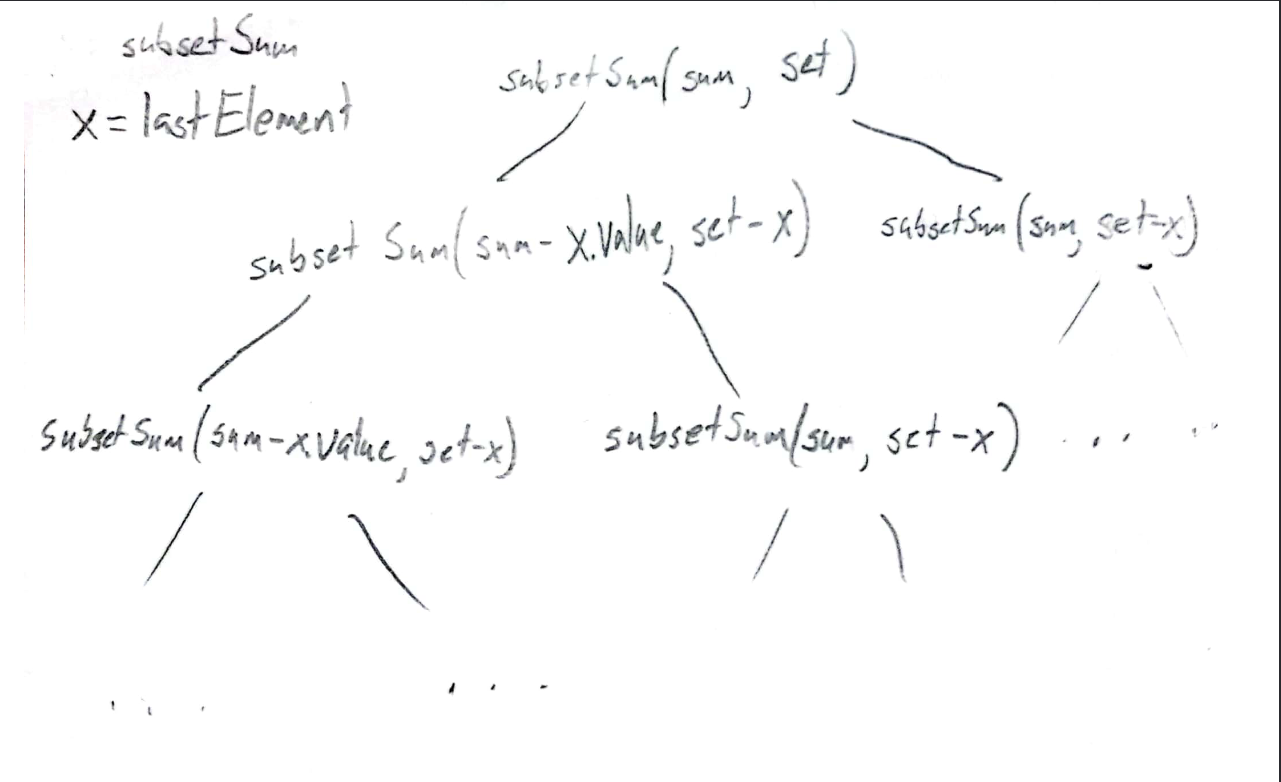 subsetSum
x = lastElement
subsetSum(sum, set)
subset Sum(sum - x.Value, set - x)
subsetSum(sum, set-x)
subsetSum(sum-x.value, set-x)
subsetSum(sum, set-x)
...
...
...
...